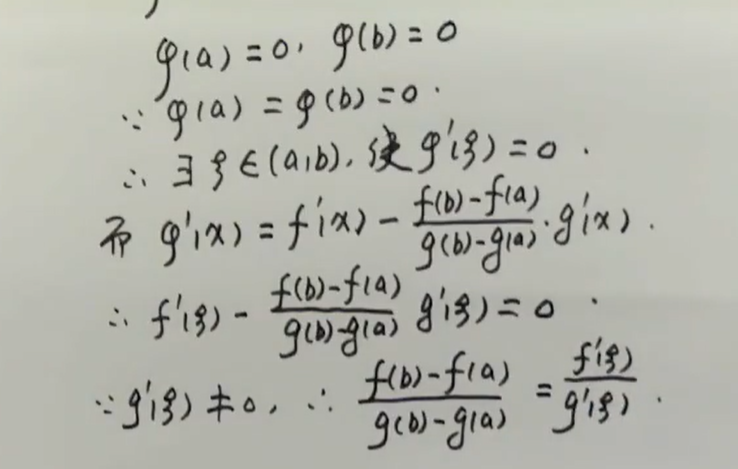 φ(a) = 0, φ(b) = 0
∵ φ(a) = φ(b) = 0.
∴ ∃ ξ ∈ (a,b), 使 φ'(ξ) = 0.
而 φ'(x) = f'(x) - \frac{f(b)-f(a)}{g(b)-g(a)} · g'(x).
∴ f'(ξ) - \frac{f(b)-f(a)}{g(b)-g(a)} g'(ξ) = 0.
∵ g'(ξ) ≠ 0, ∴ \frac{f(b)-f(a)}{g(b)-g(a)} = \frac{f'(ξ)}{g'(ξ)}.